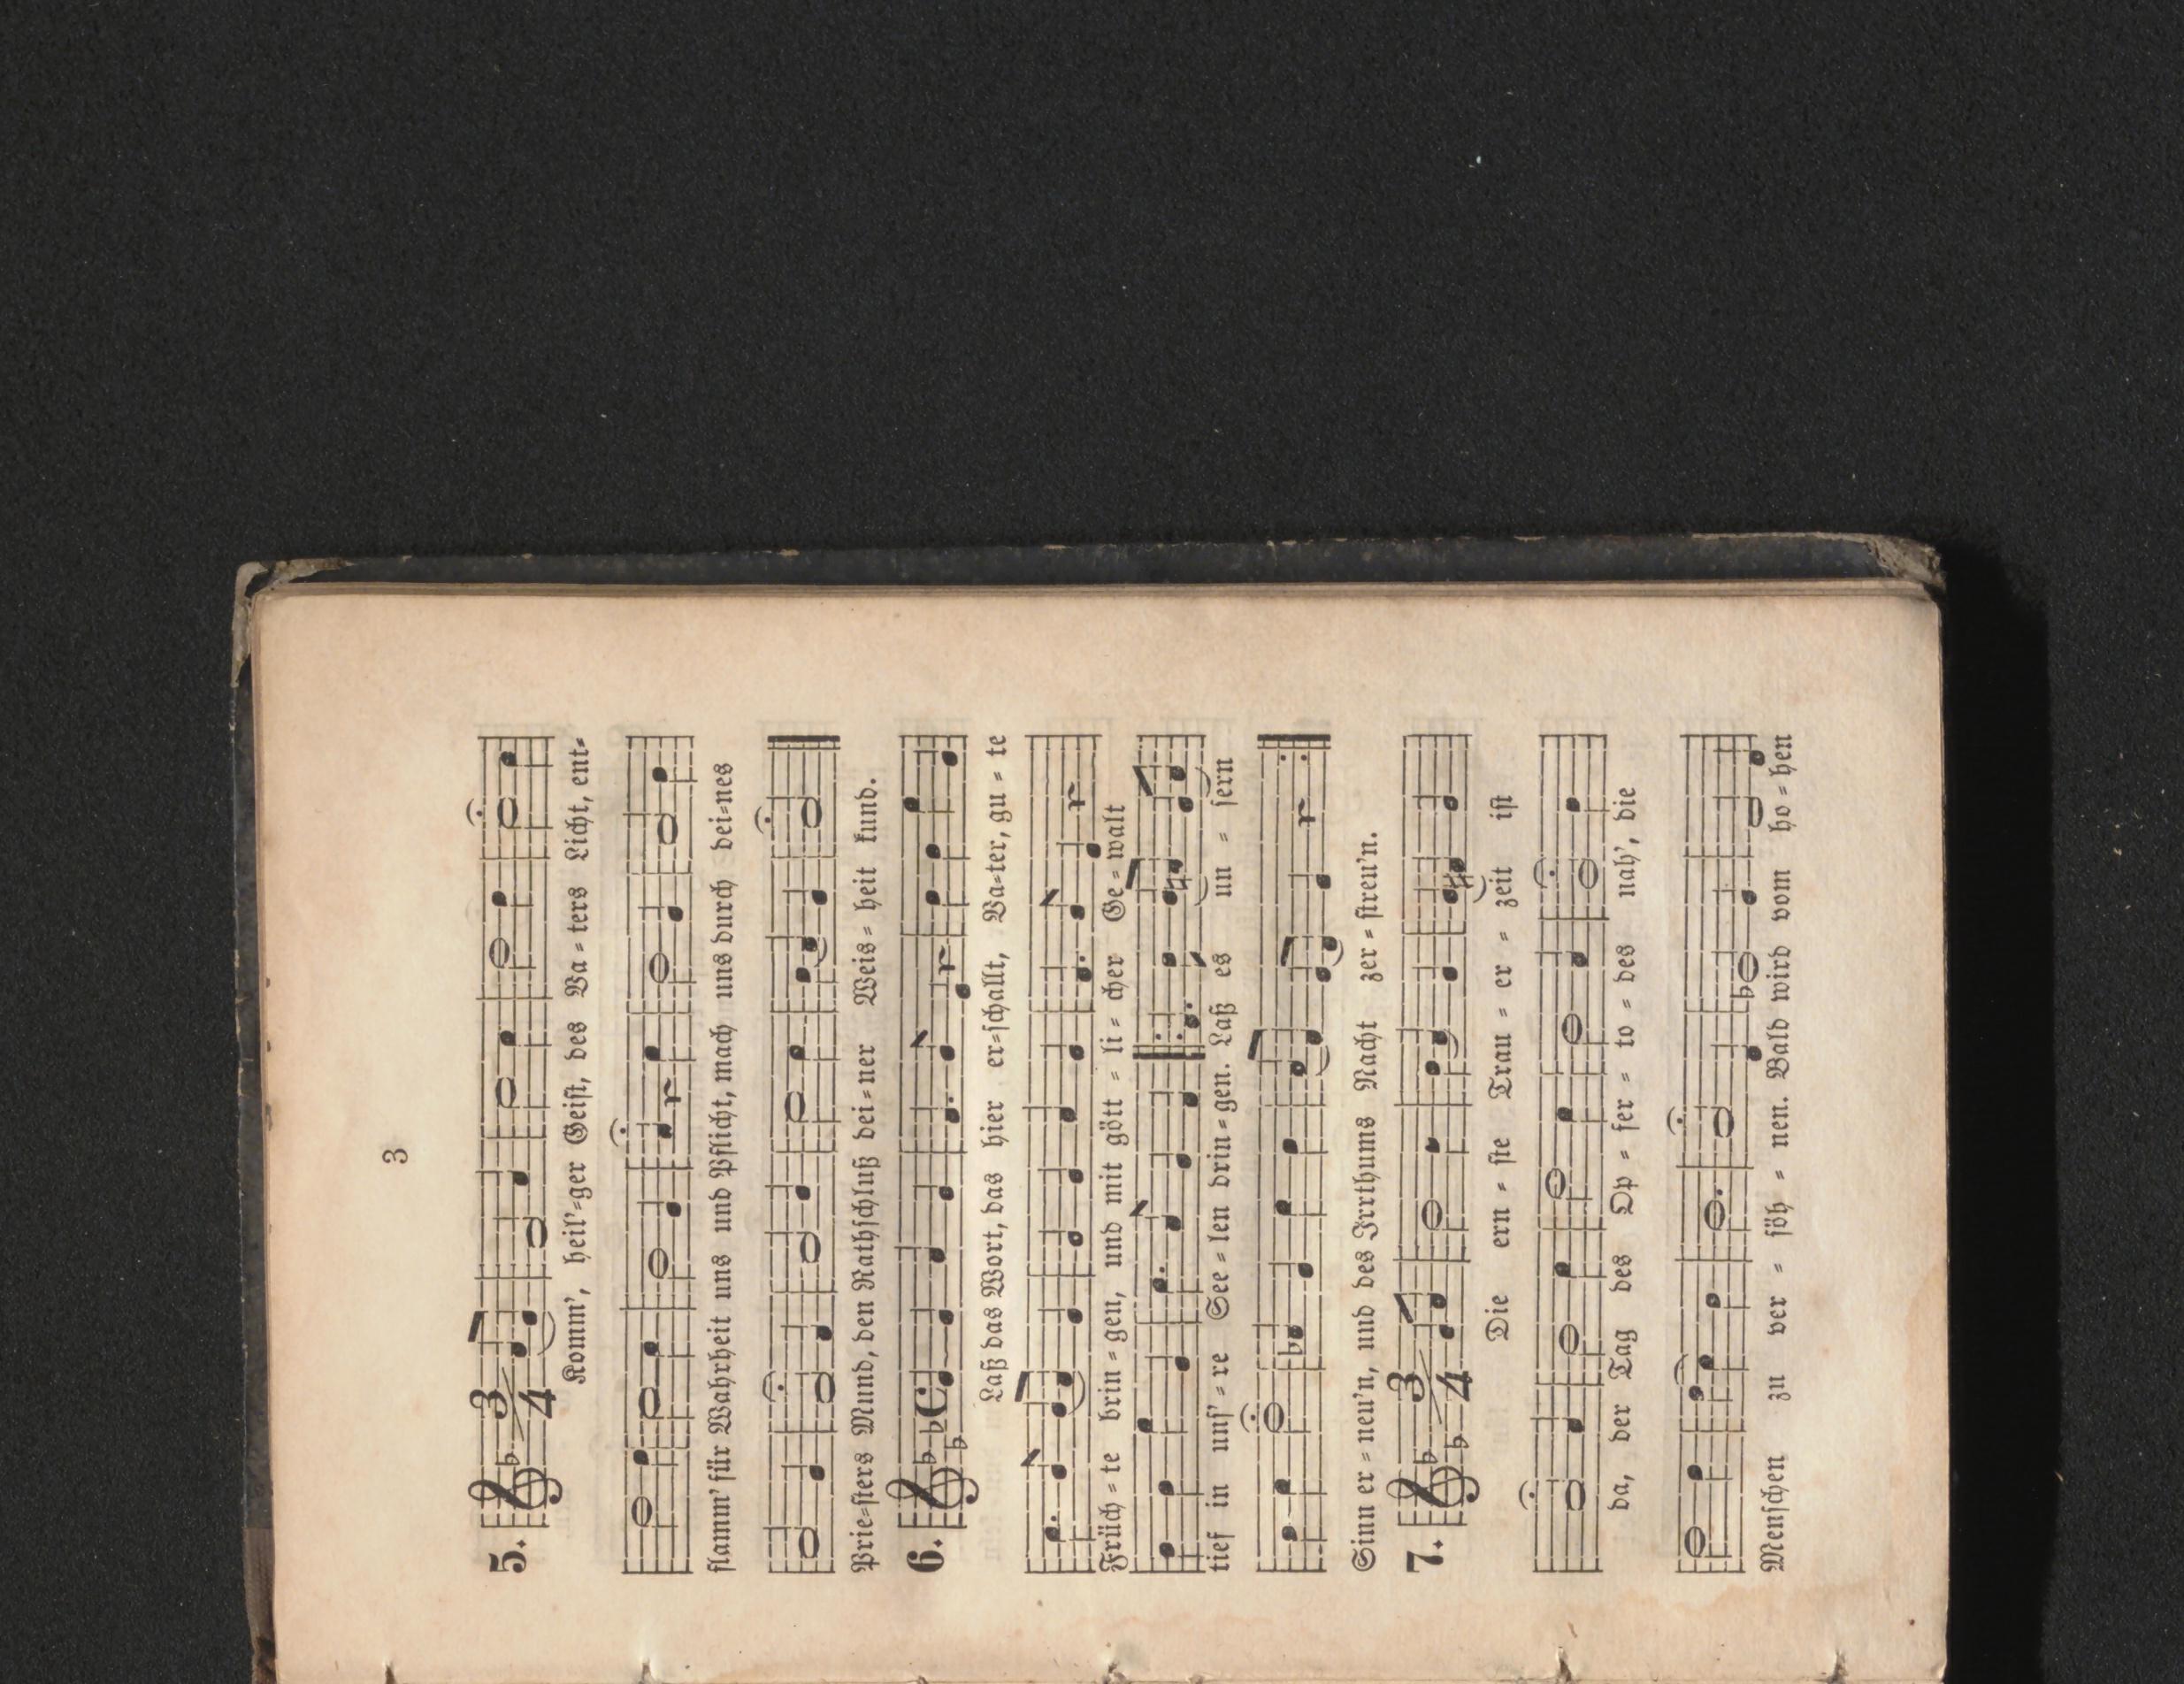 3
5.
Komm', heil'=ger Geist, des Va=ters Licht, ent=
flamm' für Wahrheit uns und Pflicht, mach uns durch dei=nes
Prie=sters Mund, den Rathschluß dei=ner Weis=heit kund.
6.
Laß das Wort, das hier er=schallt, Va=ter, gu=te
Früch=te brin=gen, und mit gött=li=cher Ge=walt
tief in uns'=re See=len drin=gen. Laß es un=sern
Sinn er=neu'n, und des Irrthums Nacht zer=streu'n.
7.
Die ern=ste Trau=er=zeit ist
da, der Tag des Op=fer=to=des nah', die
Menschen zu ver=söh=nen. Bald wird vom ho=hen